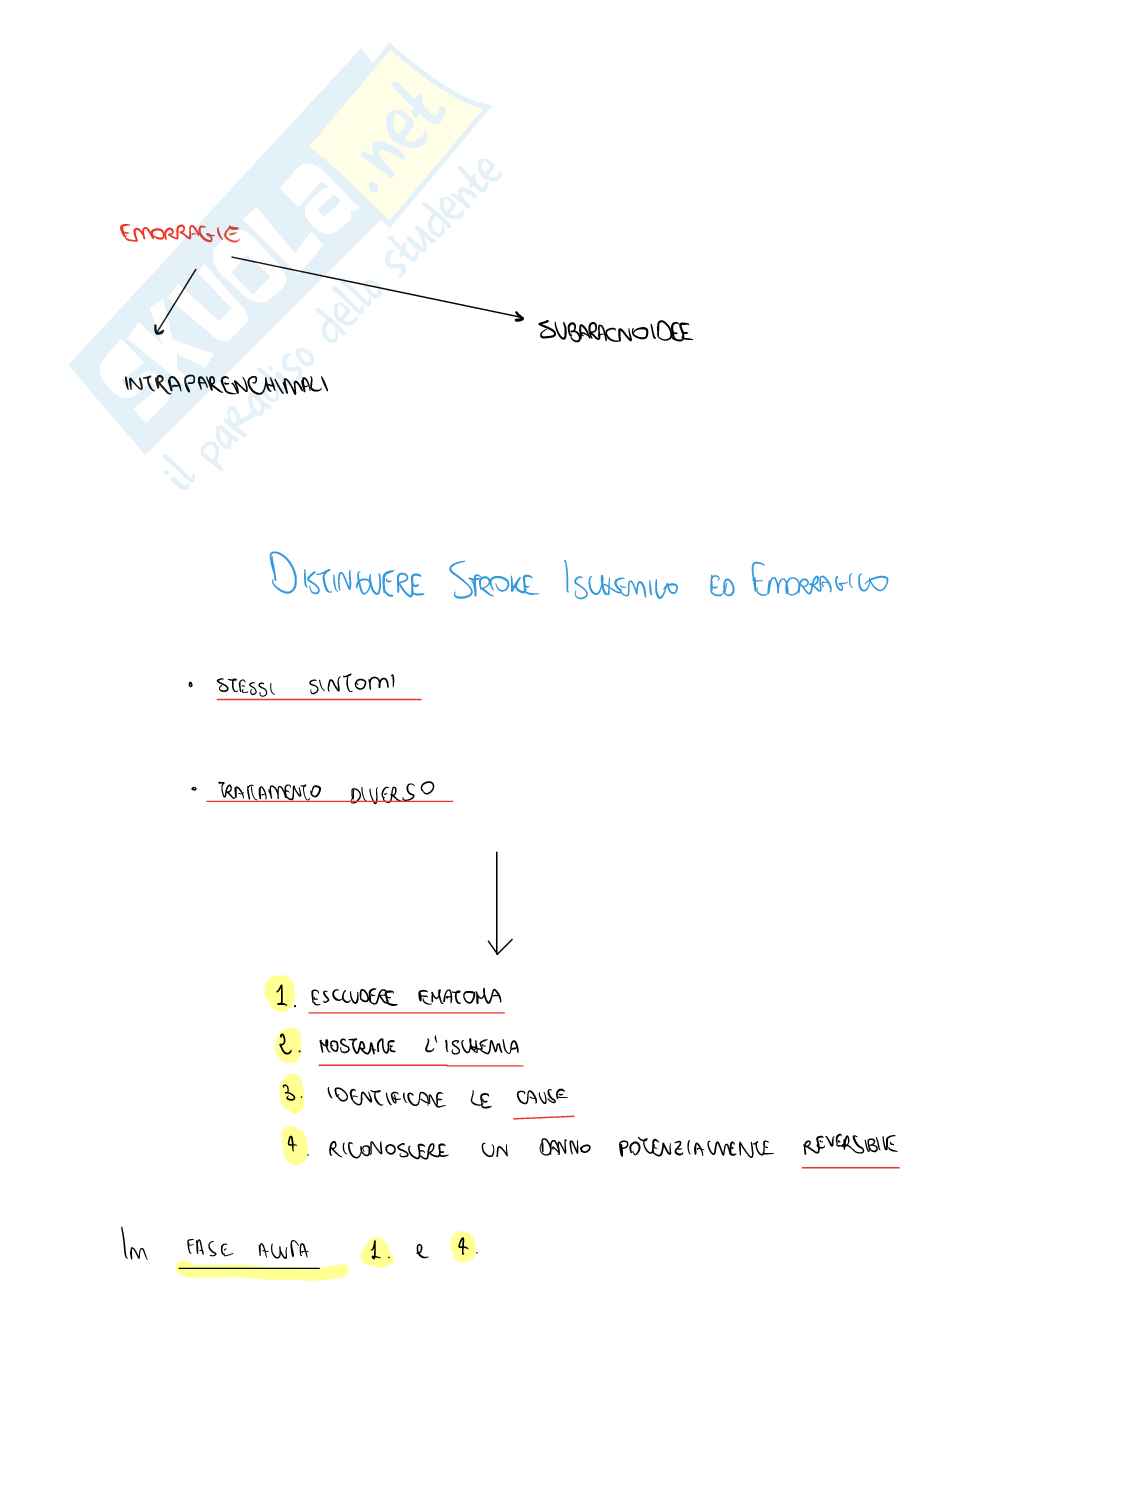 SKUOLA.net
il paradiso dello studente
EMORRAGIE
SUBARACNOIDEE
INTRAPARENCHIMALI
DISTINGUERE STROKE ISCHEMICO ED EMORRAGICO
• STESSI SINTOMI
• TRATTAMENTO DIVERSO
1. ESCLUDERE EMATOMA
2. MOSTRARE L'ISCHEMIA
3. IDENTIFICARE LE CAUSE
4. RICONOSCERE UN DANNO POTENZIALMENTE REVERSIBILE
In FASE ACUTA 1. e 4.